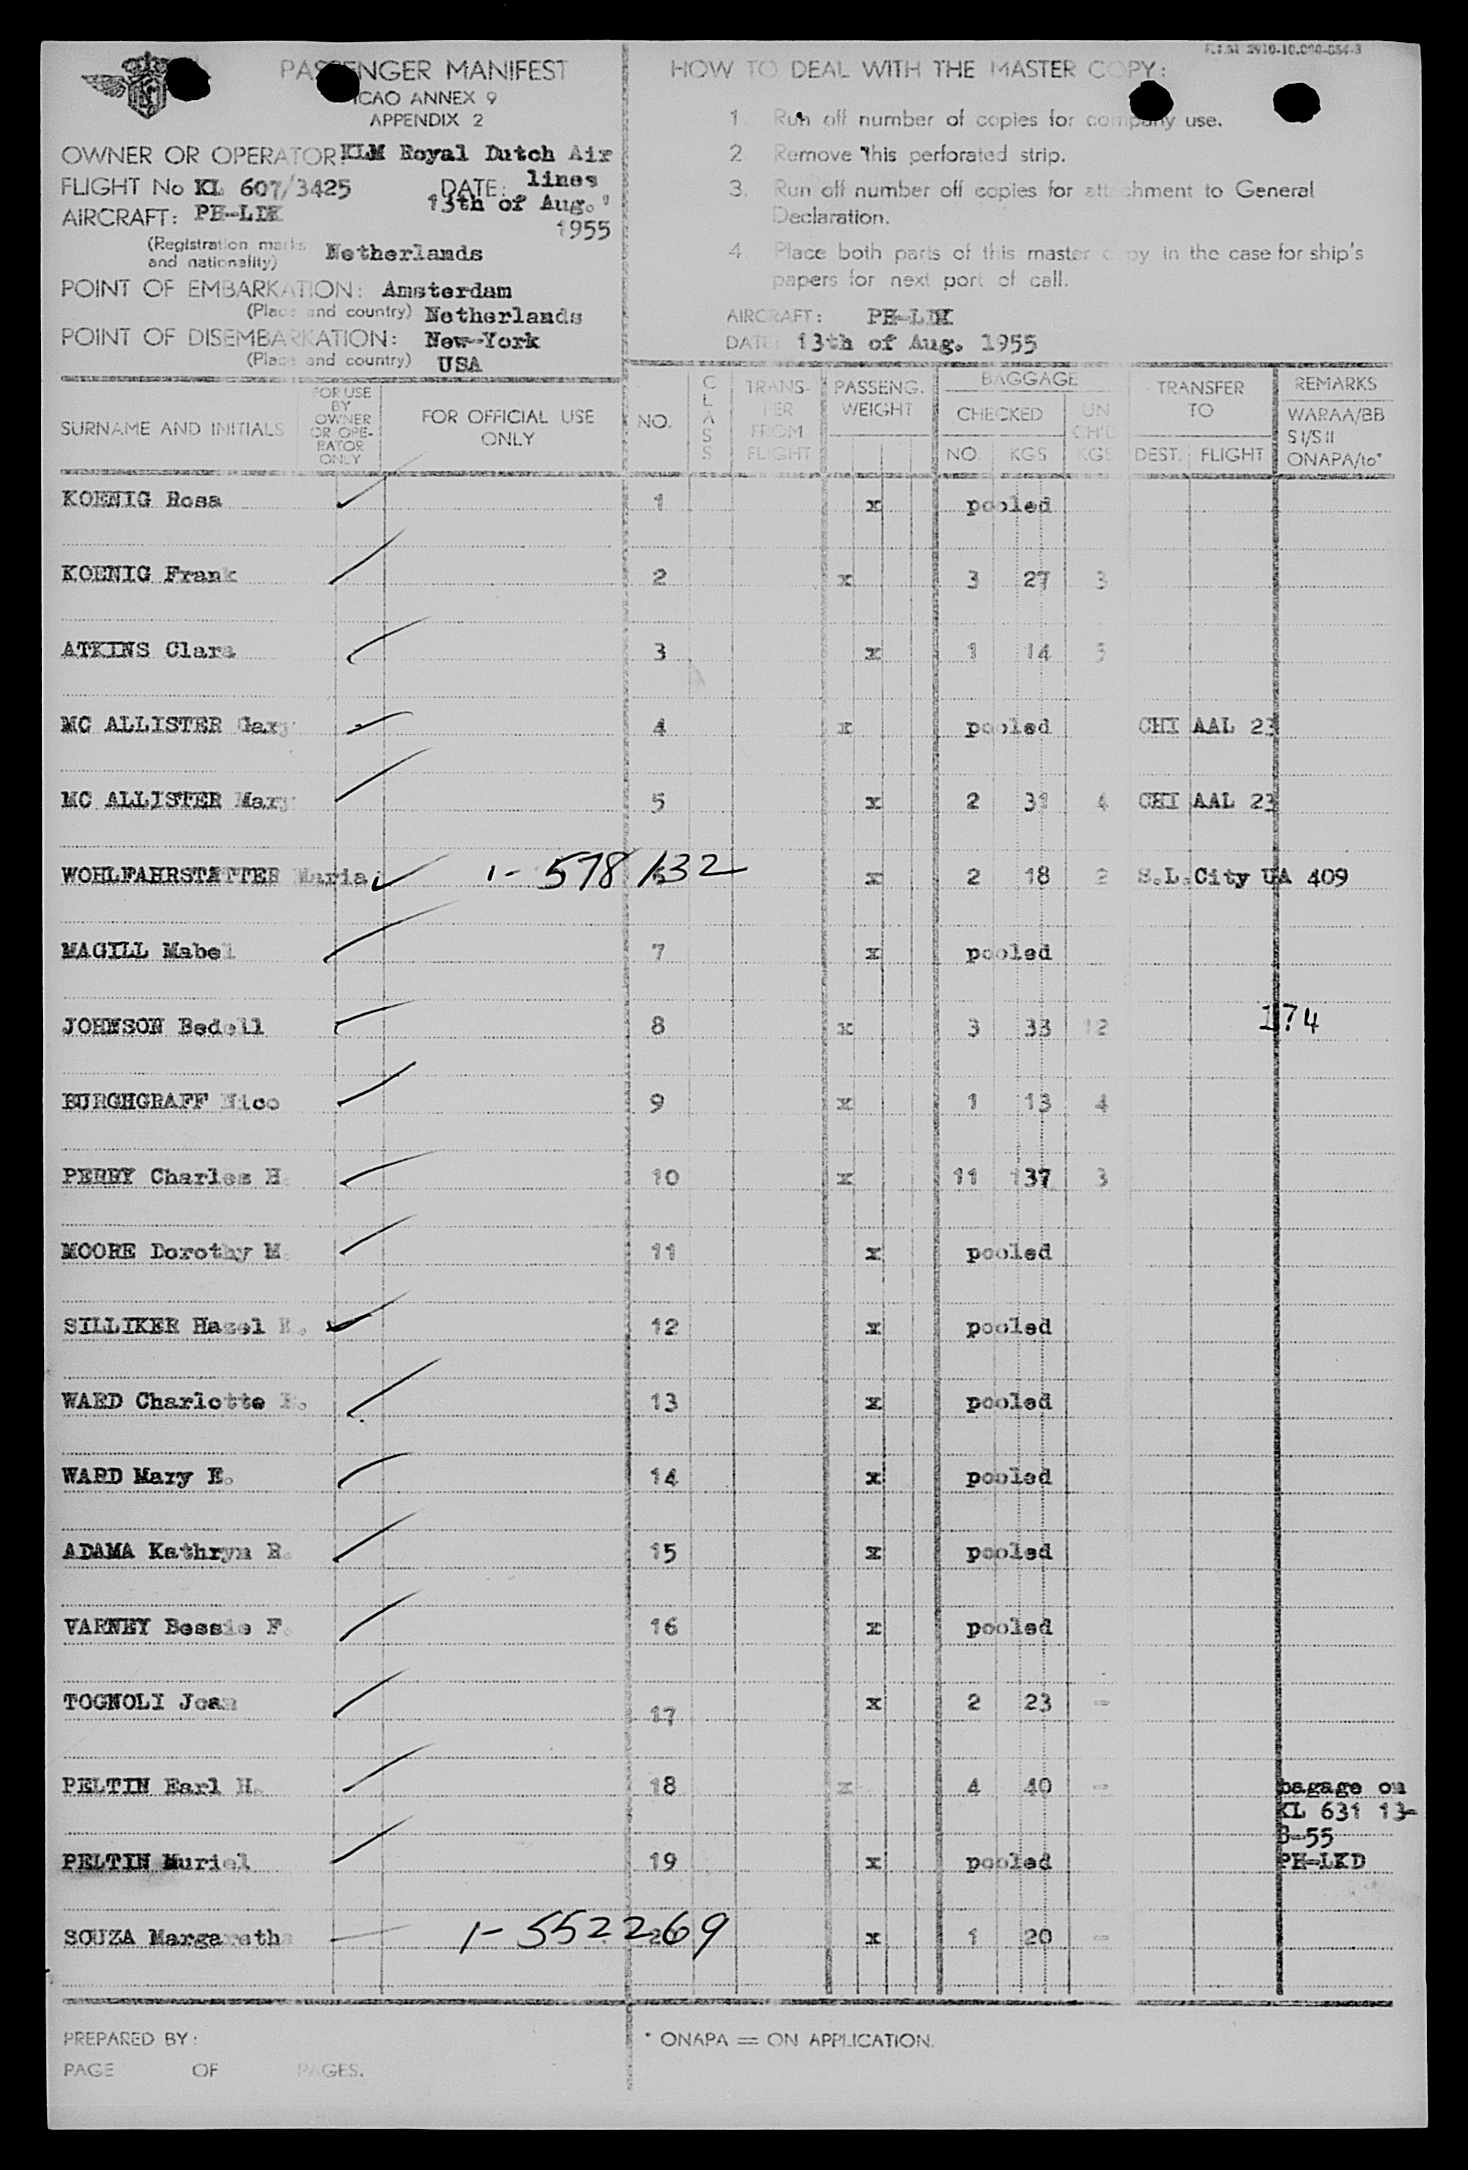 PASSENGER MANIFEST
ICAO ANNEX 9
APPENDIX 2
OWNER OR OPERATOR KLM Royal Dutch Air
lines
FLIGHT No KL 607/3425 DATE: 13th of Aug.
1955
AIRCRAFT:
(Registration marks
and nationality) Netherlands
POINT OF EMBARKATION: Amsterdam
(Place and country) Netherlands
POINT OF DISEMBARKATION: New-York
(Place and country) USA
HOW TO DEAL WITH THE MASTER COPY:
1. Run off number of copies for company use.
2. Remove this perforated strip.
3. Run off number off copies for attachment to General
Declaration.
4. Place both parts of this master copy in the case for ship's
papers for next port of call.
AIRCRAFT:
DATE: 13th of Aug. 1955
SURNAME AND INITIALS
FOR USE
BY
OWNER
OR OPE-
RATOR
ONLY
FOR OFFICIAL USE
ONLY
NO.
CLASS
TRANS-
FER
FROM
FLIGHT
PASSENG.
WEIGHT
BAGGAGE
CHECKED
NO. KGS
UN
CH'D
KGS
TRANSFER
TO
DEST. FLIGHT
REMARKS
WARAA/BB
SI/SII
ONAPA/to*
KOENIG Rosa 1 x pooled
KOENIG Frank 2 x 3 27 3
ATKINS Clara 3 x 1 14 3
MC ALLISTER Gary 4 x pooled CHI AAL 23
MC ALLISTER Mary 5 x 2 31 4 CHI AAL 23
WOHLFAHRSTATTER Maria 1- 578 132 x 2 18 2 S.L.City UA 409
MAGILL Mabel 7 x pooled
JOHNSON Bedell 8 x 3 33 12 174
BURGHGRAFF Nico 9 x 1 13 4
PERRY Charles H. 10 x 11 137 3
MOORE Dorothy M. 11 x pooled
SILLIKER Hazel 12 x pooled
WARD Charlotte 13 x pooled
WARD Mary E. 14 x pooled
ADAMA Kathryn R. 15 x pooled
VARNEY Bessie F. 16 x pooled
TOGNOLI Joan 17 x 2 23 -
PELTIN Earl H. 18 x 4 40 - bagage on
KL 631 13-
8-55
PELTIN Muriel 19 x pooled PH-LKD
SOUZA Margaretha 1- 552269 20 x 1 20 -
PREPARED BY:
PAGE OF PAGES.
* ONAPA = ON APPLICATION.